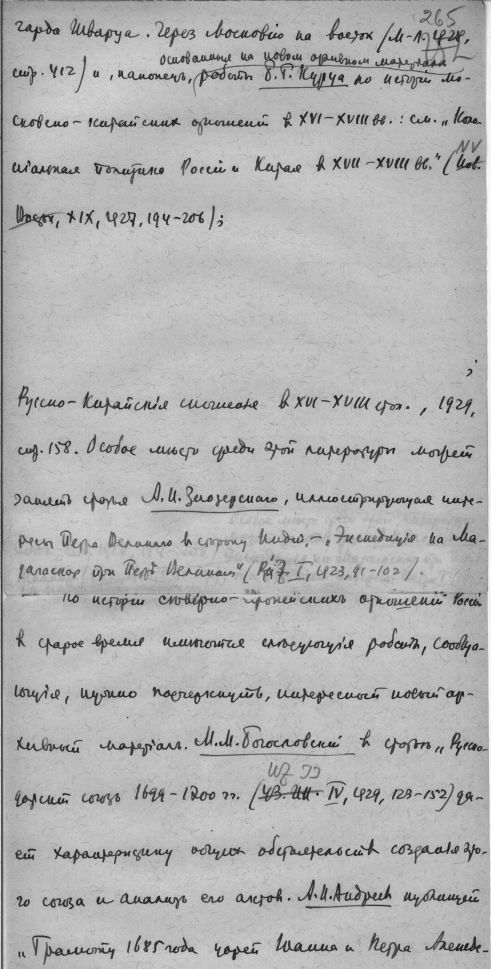 265
гарда Шварца. Через Московію на восток (М-Л. 1928,
основанныя на новом архивном матеріалѣ
стр. 412) и, наконецъ, работы Б. Г. Курца по исторіи мо-
сковско-китайских отношеній в XVI-XVIII вв.: см. „Коло-
NV
ніальная политика Россіи и Китая в XVII-XVIII вв." (Нов.
Восток, XIX, 1927, 194-206);
;
Русско-Китайскія сношенія в XVI-XVIII стол., 1929,
стр. 158. Особое мѣсто среди этой литературы может
занять статья А.И. Заозерскаго, иллюстрирующая инте-
ресы Петра Великаго в сторону Индіи, - „Экспедиция на Ма-
дагаскар при Петрѣ Великом" (I, 1923, 91-102).
По исторіи сѣверно-европейскихъ отношеній Россіи
в старое время имѣются слѣдующія работы, сообща-
ющія, нужно подчеркнуть, интересный новый ар-
хивный матеріалъ. М.М. Богословскій в статьѣ „Русско-
датскій союзъ 1699-1700 гг. (IV, 1929, 123-152) да-
ет характеристику общих обстоятельств созданія это-
го союза и анализъ его актов. А.И. Андреев публикует
„Грамоту 1685 года царей Іоанна и Петра Алексѣе-